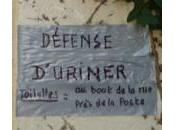 DÉFENSE
D'URINER
Toilettes = au bout de la rue
Près de la Poste